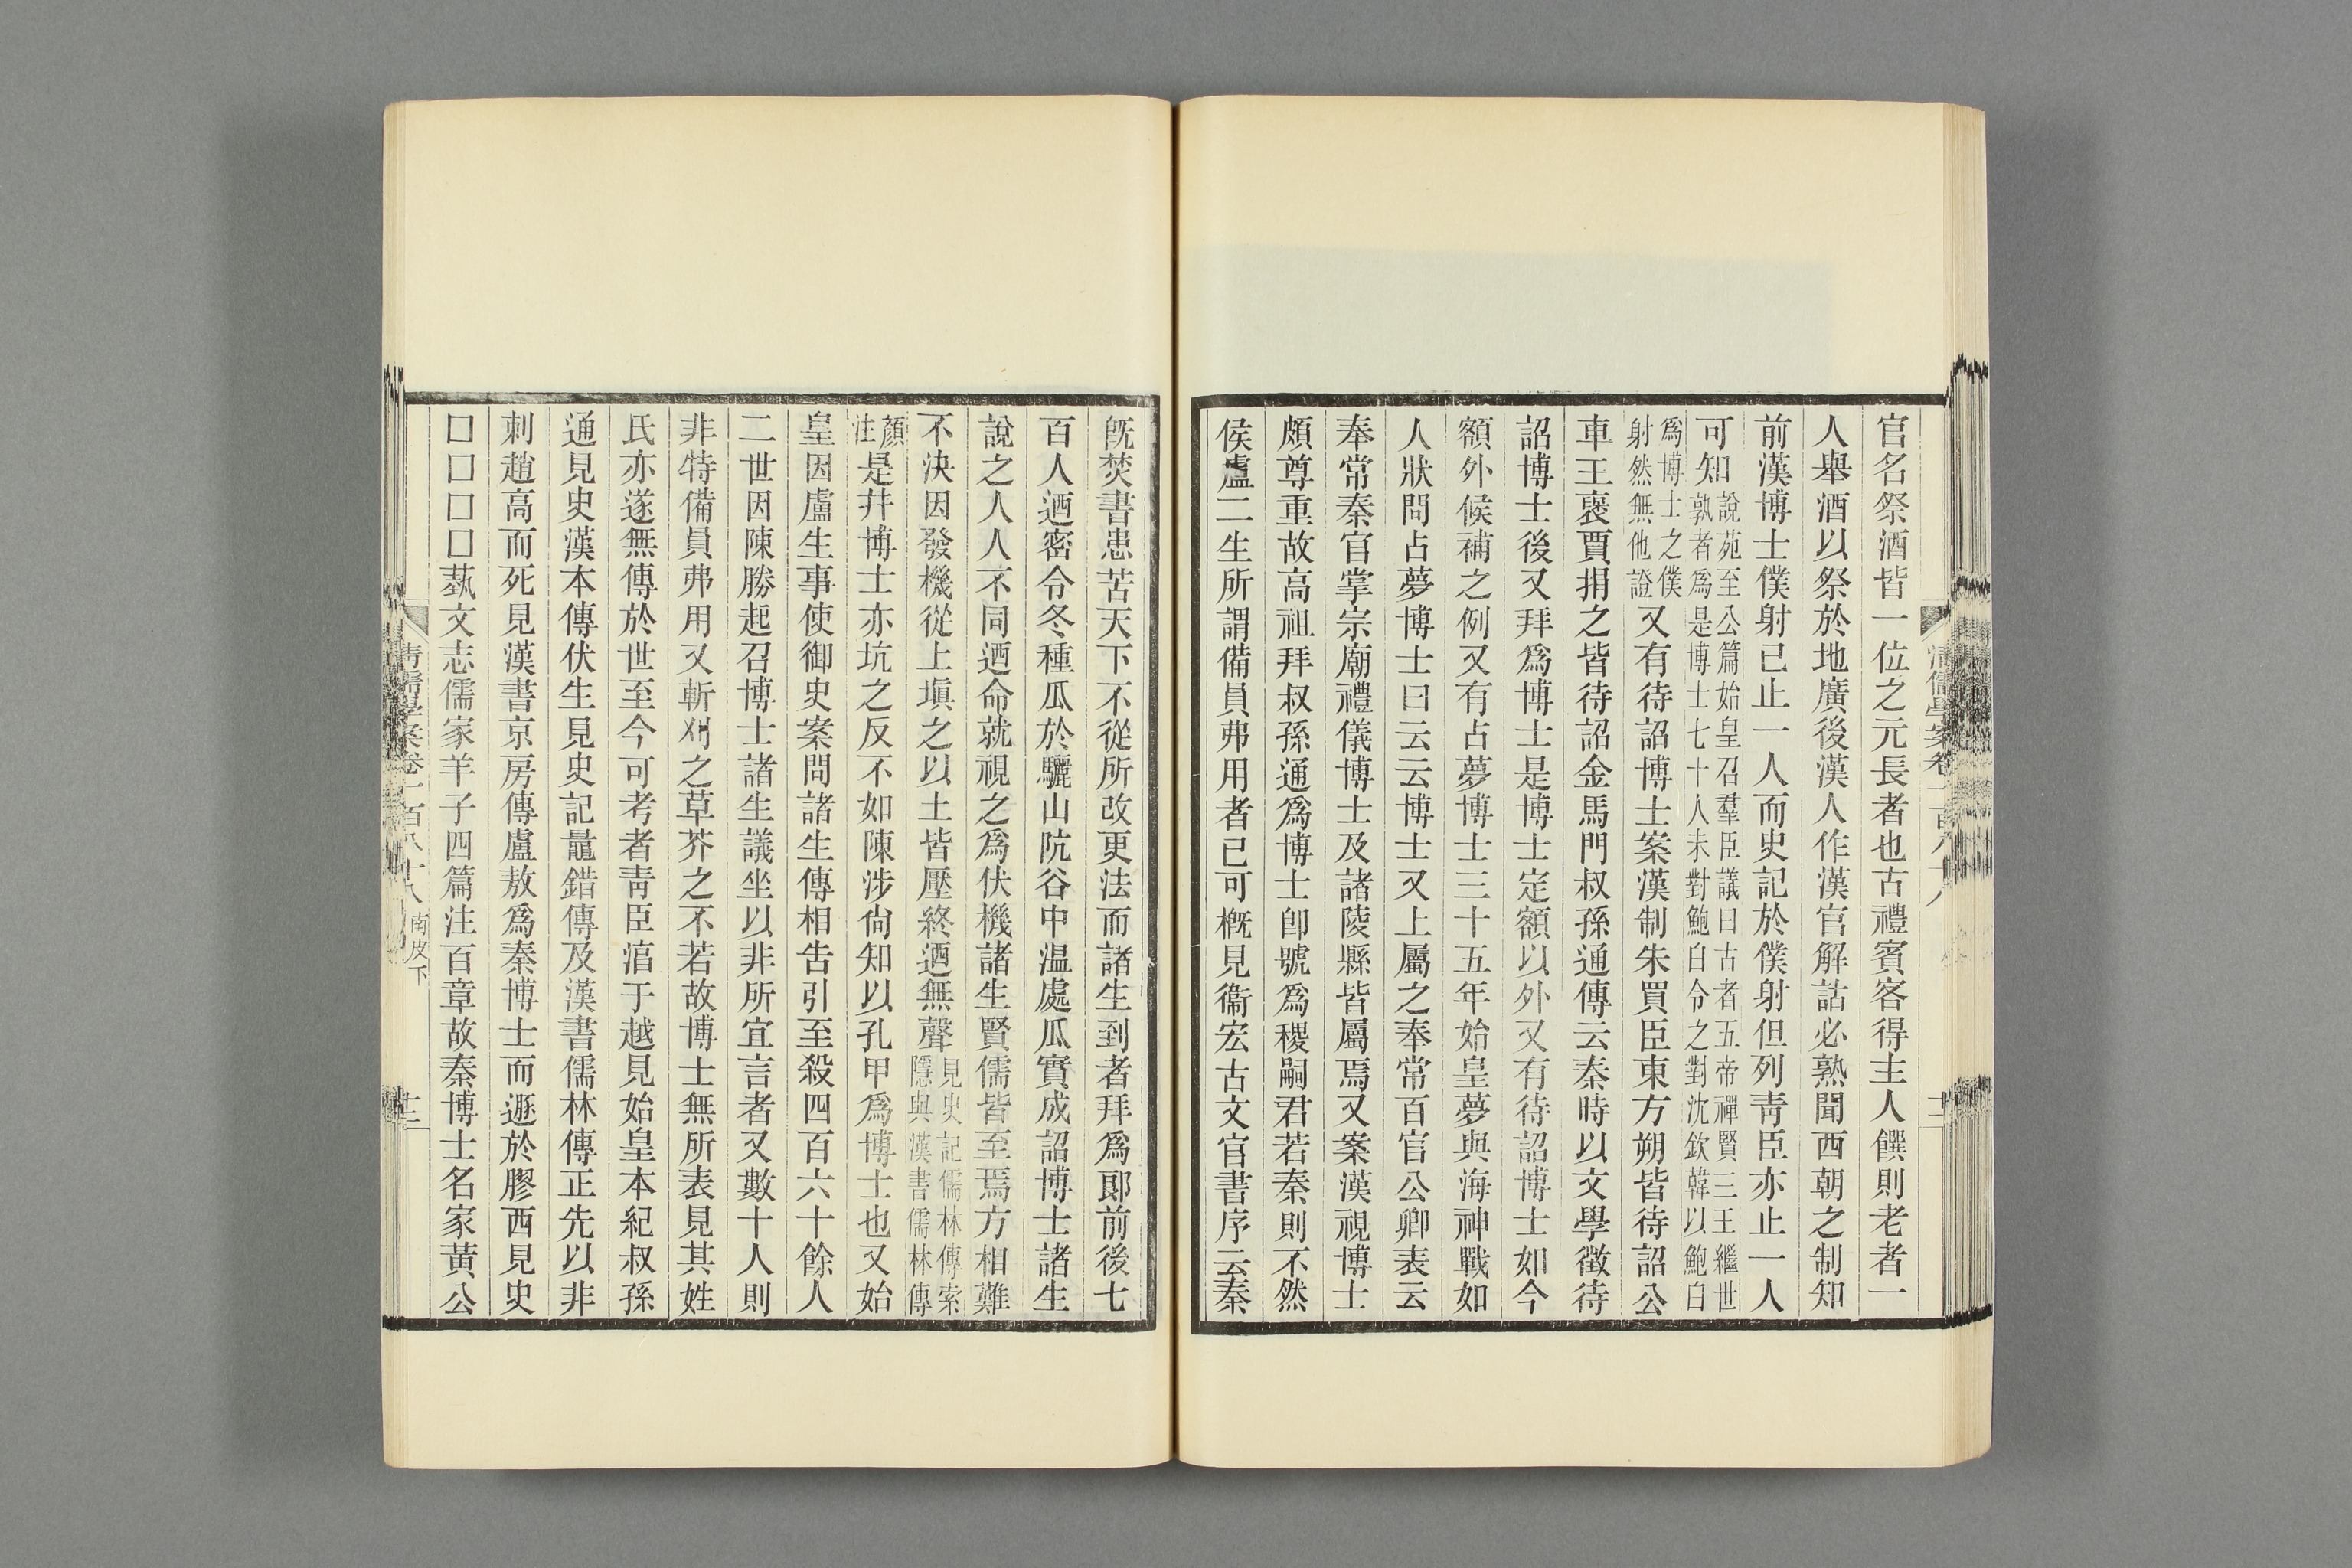 官名祭酒皆一位之元長者也古禮賓客得主人饌則老者一
人舉酒以祭於地廣後漢人作漢官解詁必熟聞西朝之制知
前漢博士僕射已止一人而史記於僕射但列靑臣亦止一人
可知說苑至公篇始皇召羣臣議曰古者五帝禪賢三王繼世
孰者爲是博士七十人未對鮑白令之對沈欽韓以鮑白
爲博士之僕
射然無他證又有待詔博士案漢制朱買臣東方朔皆待詔公
車王襃賈捐之皆待詔金馬門叔孫通傳云秦時以文學徵待
詔博士後又拜爲博士是博士定額以外又有待詔博士如今
額外候補之例又有占夢博士三十五年始皇夢與海神戰如
人狀問占夢博士曰云云博士又上屬之奉常百官公卿表云
奉常秦官掌宗廟禮儀博士及諸陵縣皆屬焉又案漢視博士
頗尊重故高祖拜叔孫通爲博士卽號爲稷嗣君若秦則不然
侯盧二生所謂備員弗用者已可概見衞宏古文官書序云秦
旣焚書患苦天下不從所改更法而諸生到者拜爲郞前後七
百人迺密令冬種瓜於驪山阬谷中温處瓜實成詔博士諸生
說之人人不同迺命就視之爲伏機諸生賢儒皆至焉方相難
不決因發機從上塡之以土皆壓終迺無聲見史記儒林傳索
隱與漢書儒林傳
顏
注是幷博士亦坑之反不如陳涉尙知以孔甲爲博士也又始
皇因盧生事使御史案問諸生傳相吿引至殺四百六十餘人
二世因陳勝起召博士諸生議坐以非所宜言者又數十人則
非特備員弗用又斬刈之草芥之不若故博士無所表見其姓
氏亦遂無傳於世至今可考者靑臣湻于越見始皇本紀叔孫
通見史漢本傳伏生見史記鼂錯傳及漢書儒林傳正先以非
刺趙高而死見漢書京房傳盧敖爲秦博士而遯於膠西見史
□□□□蓺文志儒家羊子四篇注百章故秦博士名家黃公
淸儒學案卷一百八十八 南皮下
十二